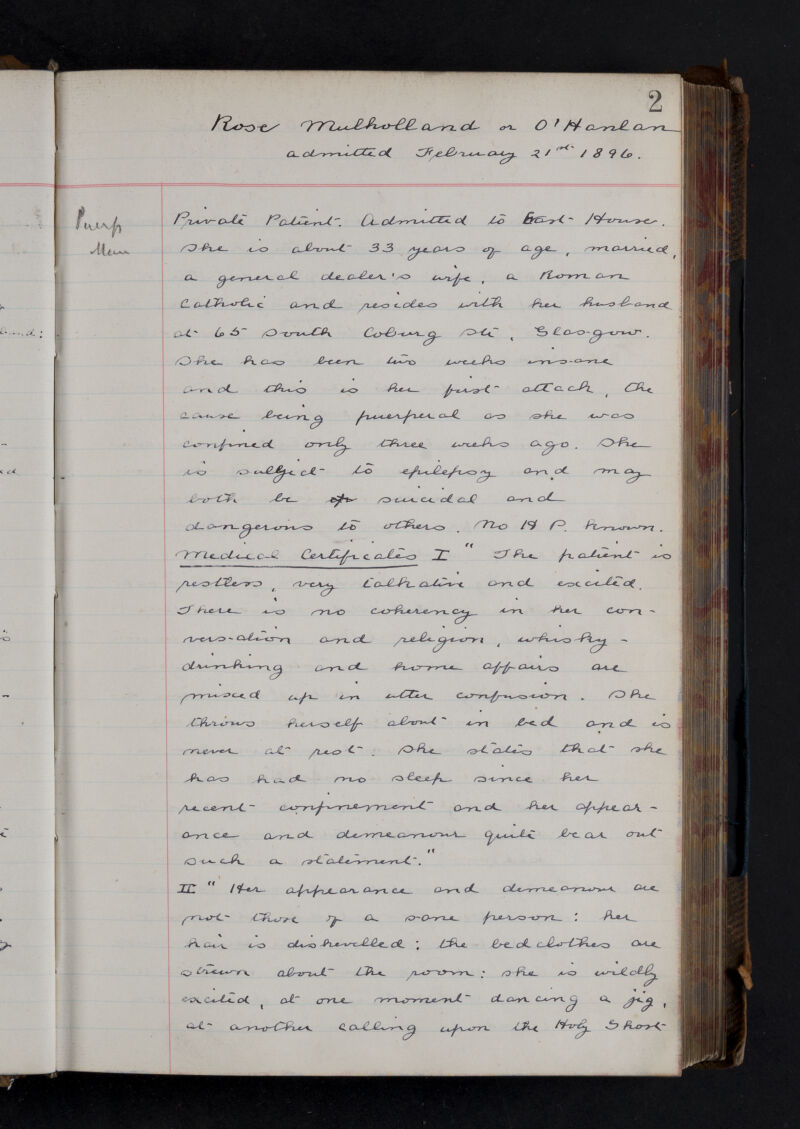 2
Rose Mulholland or O'Hanlan
admitted February 21st 1896.
Puerp
Private Patient. Admitted to East House.
She is about 33 years of age, married,
a general dealer's wife, a Roman
Catholic and resides with her husband
at 65 South Coburg St., Glasgow.
She has been two weeks insane
and this is her first attack, the
cause being puerperal as she was
confined only three weeks ago. She
is subject to epilepsy and may
both be suicidal and
dangerous to others. No H P. known.
Medical Certificates I " The patient is
restless, very talkative and excited.
There is no coherency in her con-
versation and religion, whisky-
drinking and home affairs are
mixed up in utter confusion. She
throws herself about in bed and is
never at rest: She states that she
has had no sleep since her
recent confinement and her appear-
ance and demeanour quite bear out
such a statement."
II " Her appearance and demeanour are
not those of a sane person: her
hair is dishevelled; the bedclothes are
strewn about the room: she is wildly
excited, at one moment dancing a jig,
at another calling upon the Holy Ghost